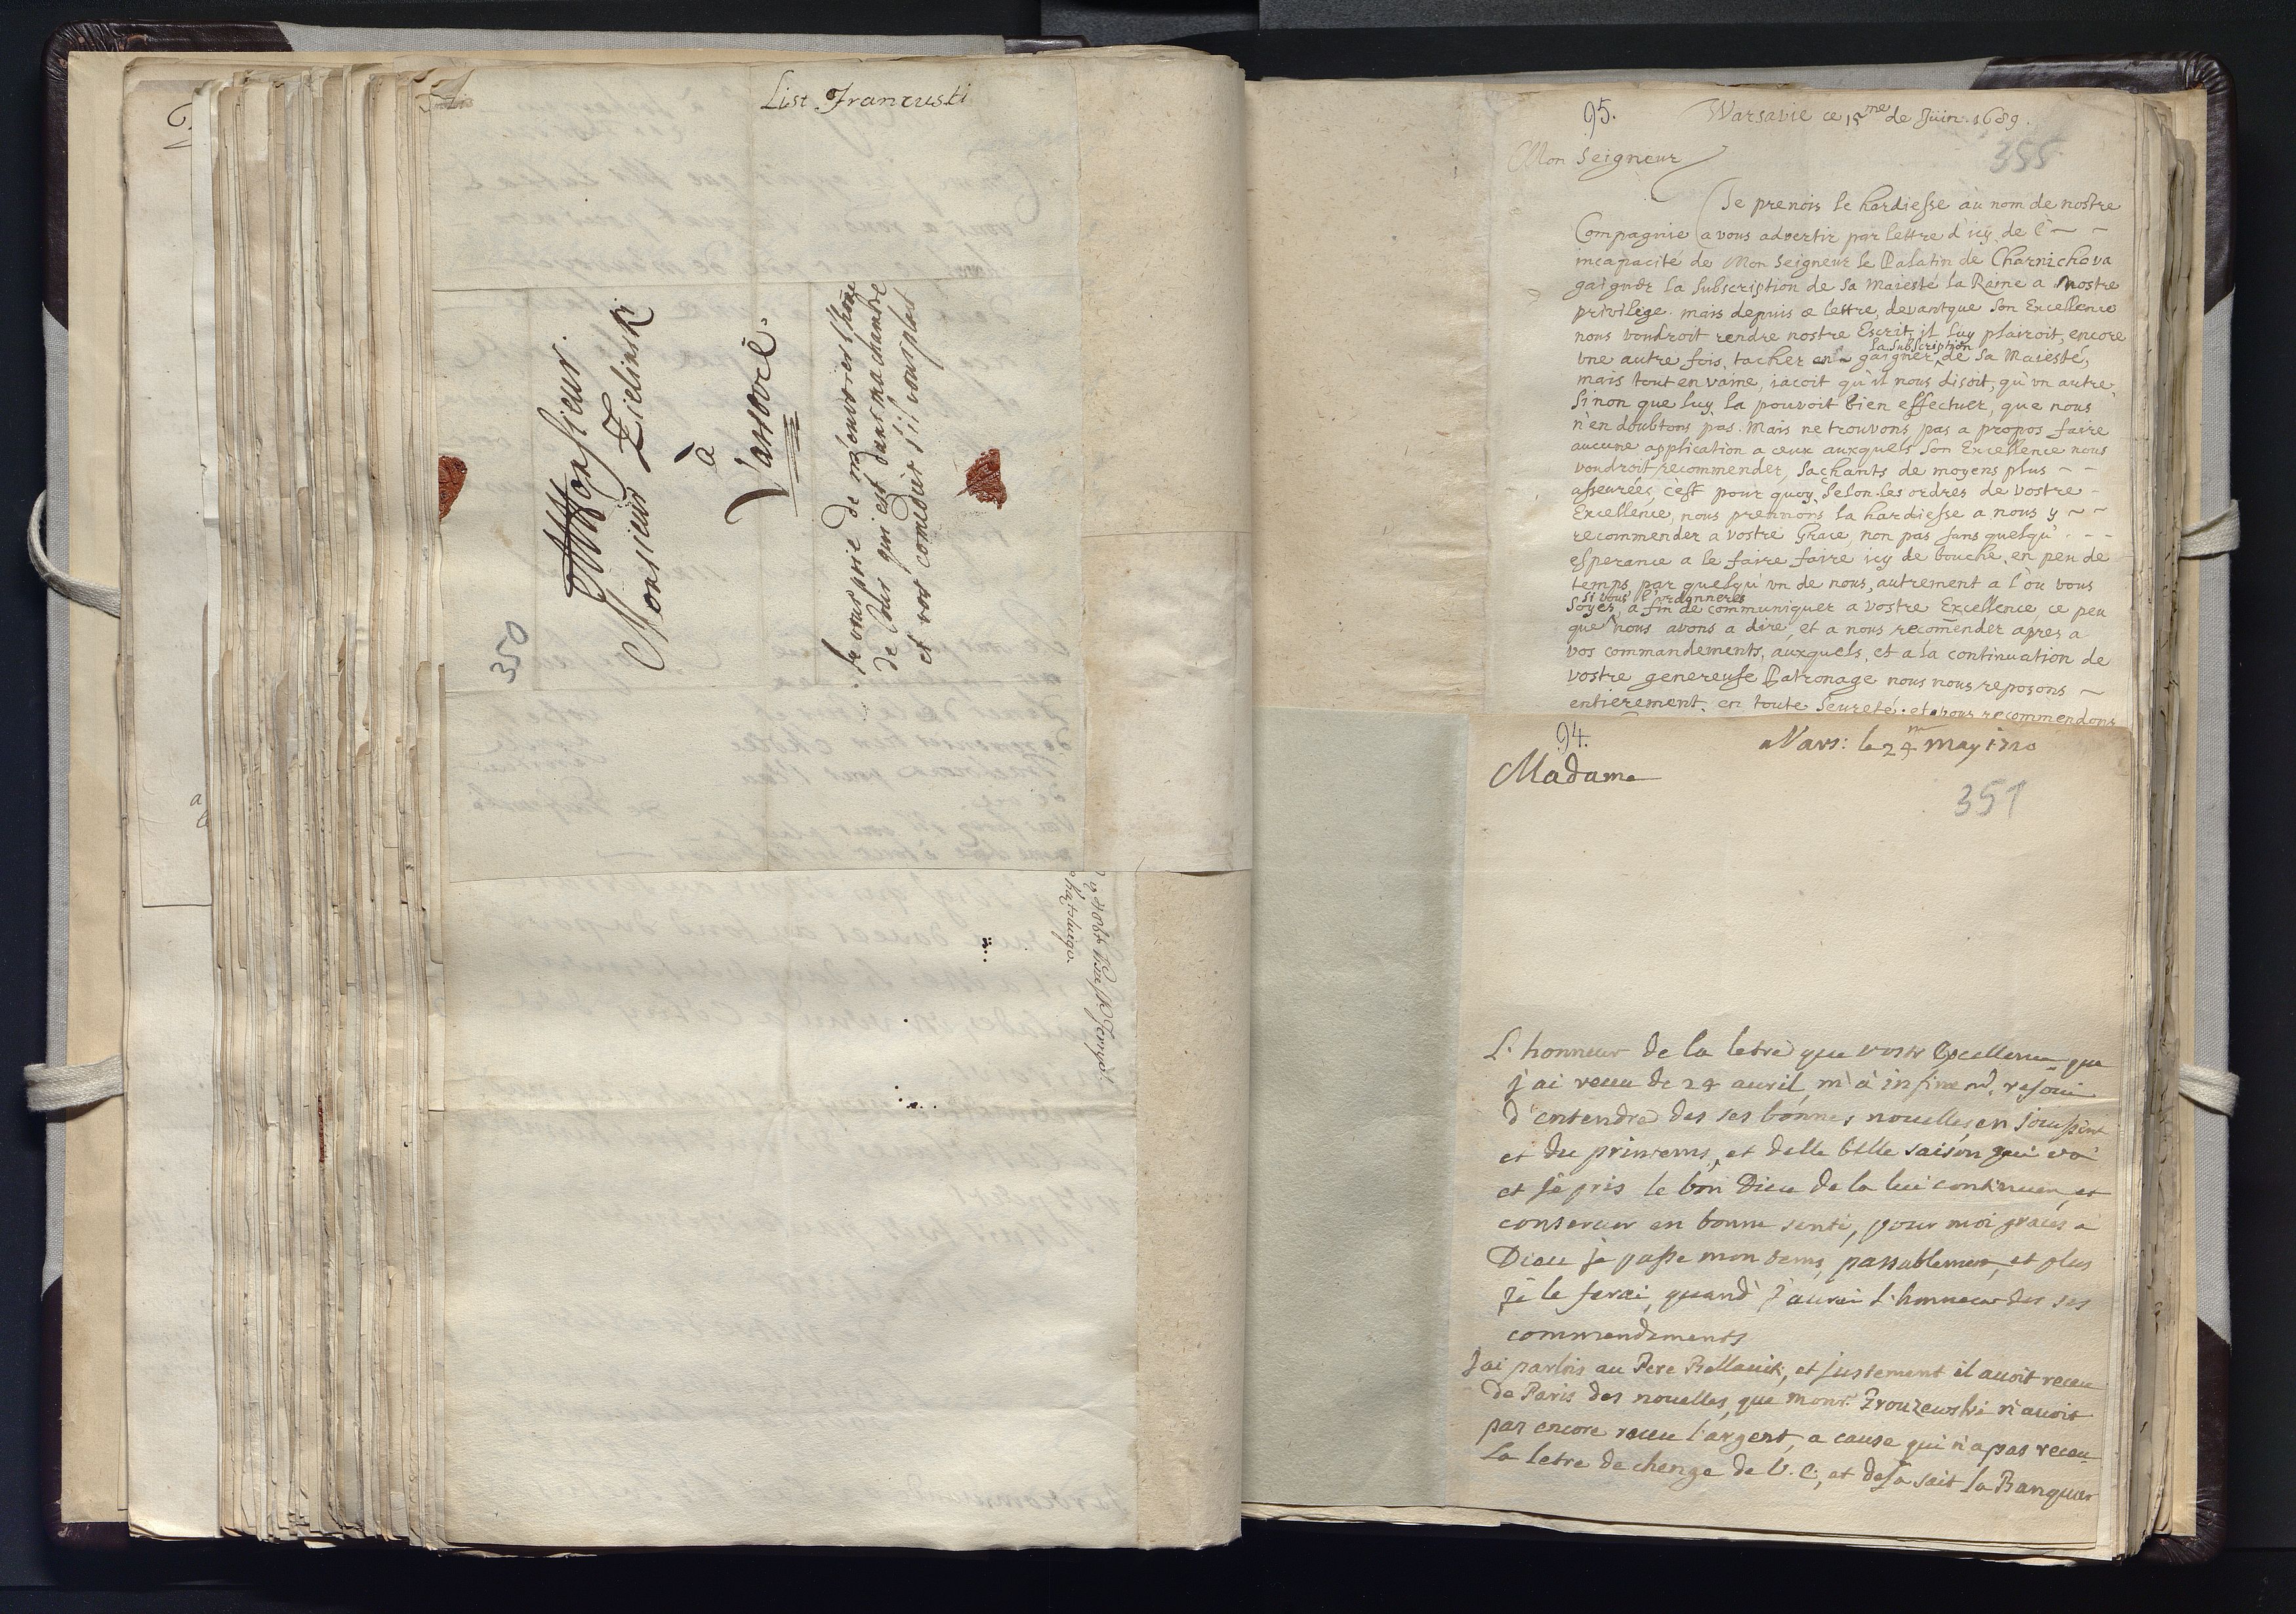 List Francuski
Monsieur
Monsieur Zielinski
à
Varsovie.
Je vous prie de m'envoier
de lous qui est dans ma chambre
et vos comeduir s'il vous plait
350
95. Warsavie ce 15me de Juin. 1689.
355
Mon Seigneur
Je prenois le hardiesse au nom de nostre
Compagnie a vous advertir par lettre d'icy, de l'~ ~
incapacité de Mon Seigneur le Palatin de Charnichova
gaigner la subscription de sa Maiesté la Raine a Nostre
privilege. mais depuis ce lettre, devantque Son Excellence
nous voudroit rendre nostre Escrit, il luy plairoit, encore
vne autre fois, tacher en gaigner la subscription de sa Maiesté,
mais tout en vaine, iacoit qu'il nous disoit, qu'vn autre
Sinon que luy la pouvoit bien effectuer, que nous
n'en doubtons pas. Mais ne trouvons pas a propos faire
aucune application a ceux auxquels Son Excellence nous
voudroit recommender, sachants de moyens plus ~ ~
asseurées, c'est pour quoy, selon les ordres de vostre -
Excellence, nous prennons la hardiesse a nous y ~ ~
recommender a vostre Grace, non pas sans quelqu' - - -
esperance a le faire faire icy de bouche, en peu de
temps, par quelqu'vn de nous, autrement a l'ou vous
soyes, si vous l'ordonneres a fin de communiquer a vostre Excellence ce peu
que nous avons a dire, et a nous recom̃ender apres a
vos commandements, auxquels, et a la continuation de
vostre genereuse Patronage nous nous reposons ~
entierement, en toute seureté. et nous recommendons
94. a Vars: le 24m May 1720
Madame
351
L'honneur de la letre que vostr Excellence que
j'ai receu de 24 auril, m'à infinemt. rejoui
d'entendre des ses bonnes nouelles, en jouissant
et du printems, et delle belle saison qui va
et je pris le bon Dieu de la lui continuer, et
conseruer en bonne senté, pour moi graces à
Dieu je passe mon tems, passablement, et plus
je le ferai, quand j'aurai l'honneur des ses
commendements
J'ai parlois au Pere Bellauit, et justement il auoit receu
de Paris des nouelles, que monsr. Zrouzewski n'auoit
pas encore receu l'argent, a cause qui n'a pas receu
La letre de chenge de V. E., et desja sait la Banquer